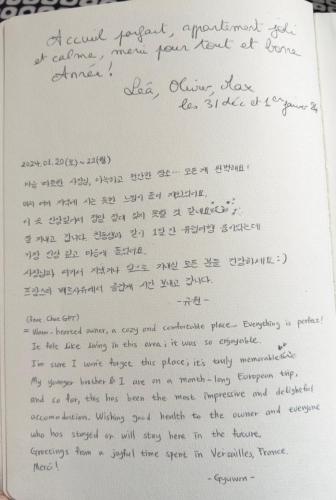 Accueil parfait, appartement joli
et calme, merci pour tout et bonne
Année!
Léa, Olivier, Max
les 31 déc et 1er janvier 24
2024.01.20(토)~22(월)
마음 따뜻한 사장님, 아늑하고 편안한 장소... 모든게 완벽해요!
마치 여기 지역에 사는 듯한 느낌이 들어 재밌었어요.
이 곳 인상깊어서 정말 절대 잊지 못할 것 같네요
잘 지내고 갑니다. 친동생과 같이 1달 간 유럽여행 중이었는데
가장 인상 깊고 마음에 들었어요.
사장님과 여기서 지냈거나 앞으로 지내실 모든 분들 건강하세요:)
프랑스의 베르사유에서 즐겁게 시간 보내고 갑니다.
-규원-
(From Chat GPT)
= Warm-hearted owner, a cozy and comfortable place... Everything is perfect!
It felt like living in this area; it was so enjoyable.
I'm sure I won't forget this place; it's truly memorable
My younger brother & I are on a month-long European trip,
and so far, this has been the most impressive and delightful
accomodation. Wishing good health to the owner and everyone
who has stayed or will stay here in the future.
Greetings from a joyful time spent in Versailles, France.
Merci!
-Gyuwon-